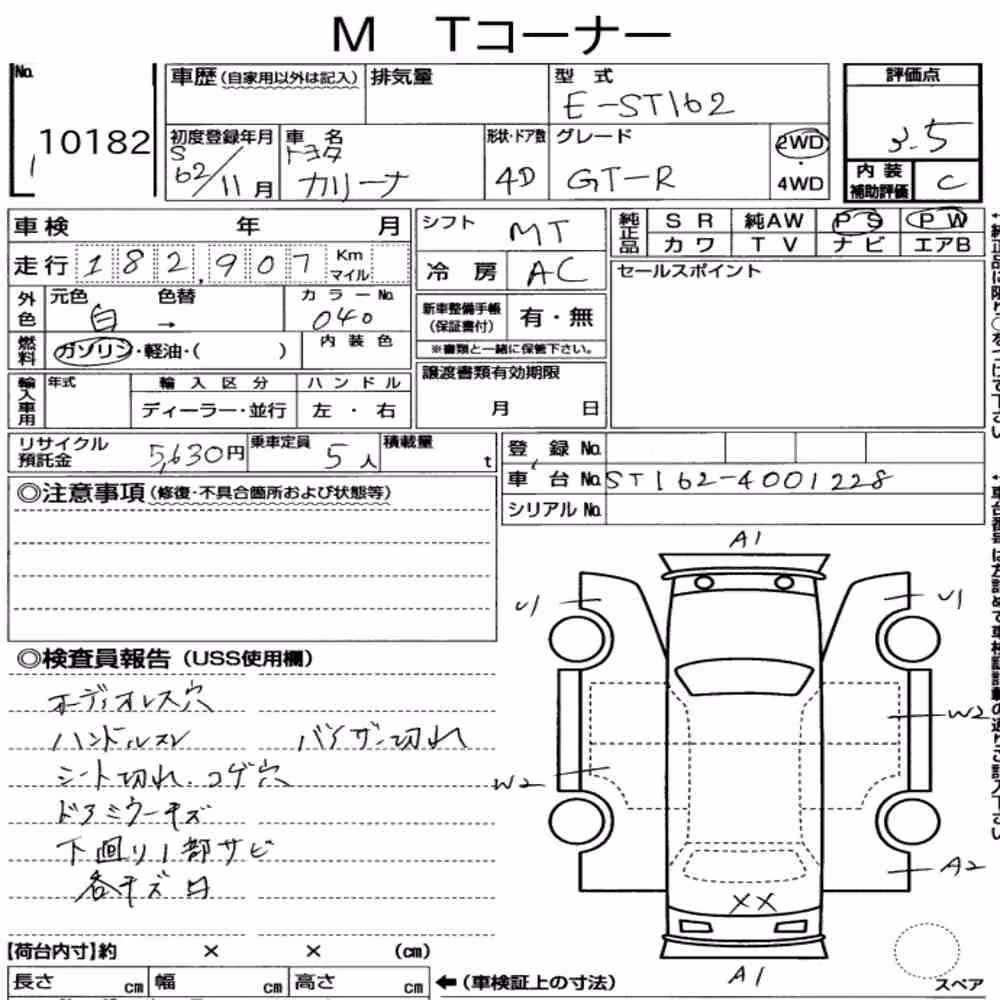 M Tコーナー
No. 10182
車歴(自家用以外は記入) 排気量 型式 E-ST162
評価点 3.5
初度登録年月 S62/11月 車名 トヨタ カリーナ 形状・ドア数 4D グレード GT-R 2WD・4WD
内装補助評価 C
車検 年 月 シフト MT
純正品 SR 純AW PS PW
カワ TV ナビ エアB
走行 182,907 Km マイル 冷房 AC
セールスポイント
外色 元色 白 色替 → カラーNo. 040
新車整備手帳(保証書付) 有・無
※書類と一緒に保管下さい。
燃料 ガソリン・軽油・( ) 内装色
譲渡書類有効期限 月 日
輸入車用 年式 輸入区分 ハンドル
ディーラー・並行 左・右
リサイクル預託金 5,630円 乗車定員 5人 積載量 t
登録No.
車台No. ST162-4001228
シリアルNo.
◎注意事項(修復・不具合箇所および状態等)
A1
U1 U1
◎検査員報告(USS使用欄)
オーディオレス穴
ハンドルスレ バイザー切れ
W2
シート切れ.コゲ穴
W2
ドアミラーキズ
下回り1部サビ
A2
各キズ凹
XX
【荷台内寸】約 × × (cm)
A1
長さ cm 幅 cm 高さ cm ←(車検証上の寸法)
スペア